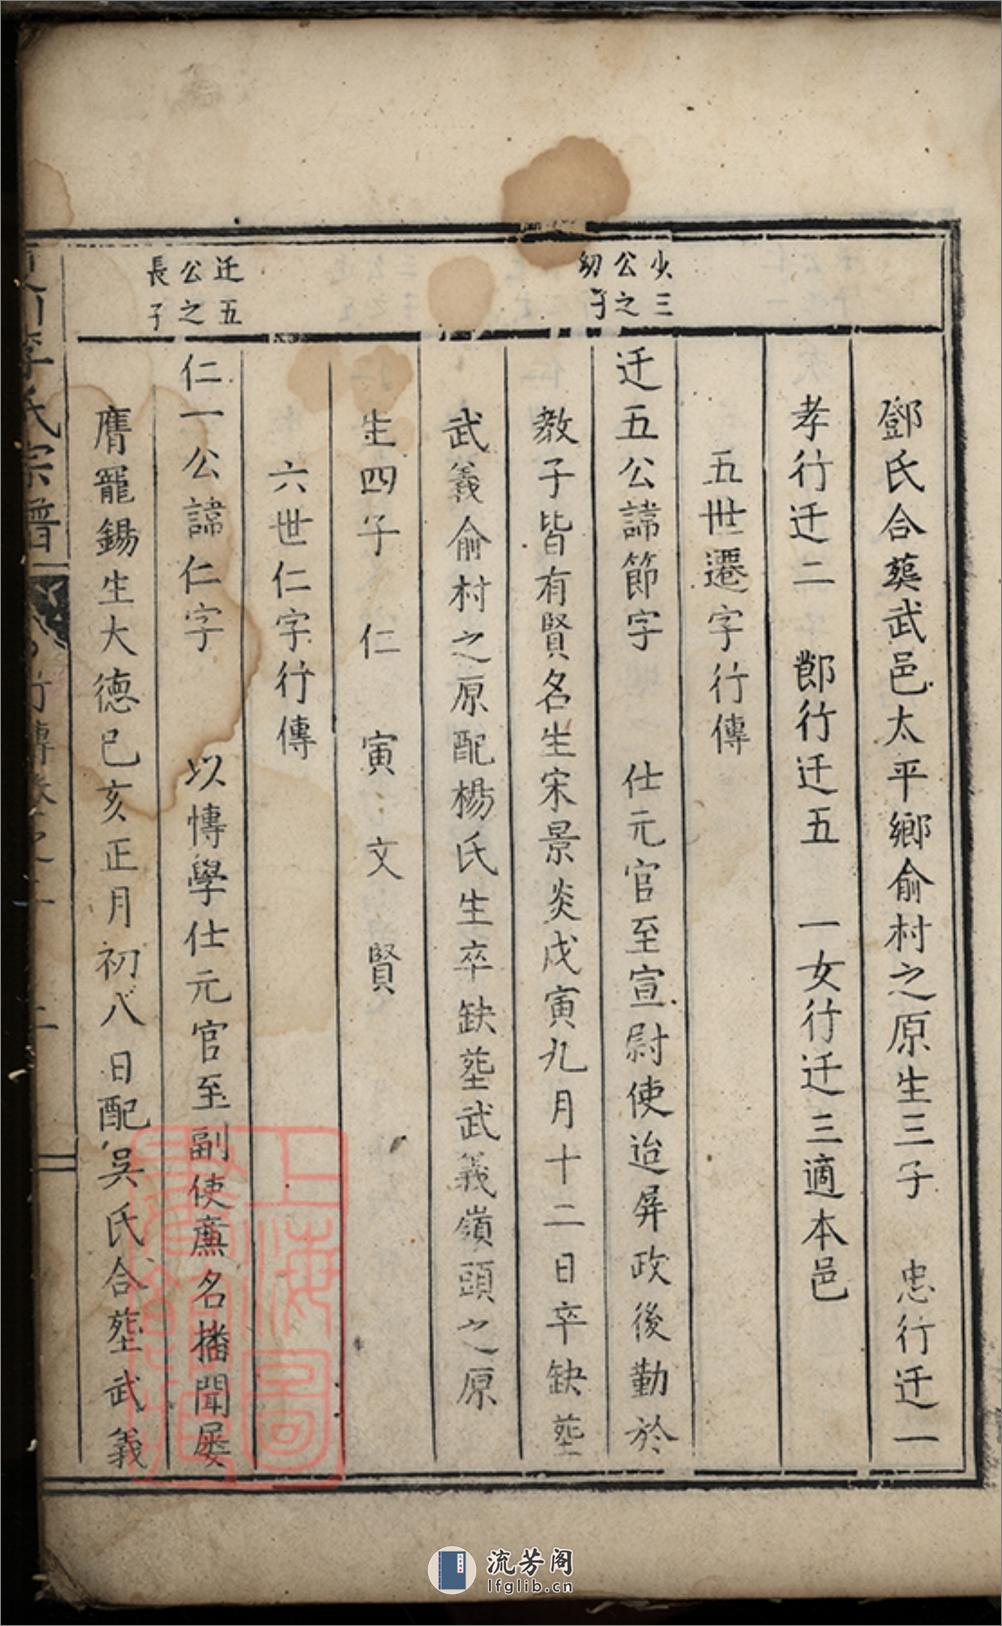 鄧氏合葬武邑太平鄉俞村之原生三子 忠行迁一
孝行迁二 節行迁五 一女行迁三適本邑
五世遷字行傳
少三公之幼子
迁五公諱節字 仕元官至宣尉使迨屏政後勤於
教子皆有賢名生宋景炎戊寅九月十二日卒缺塟
武義俞村之原配楊氏生卒缺塟武義嶺頭之原
生四子 仁 寅 文 賢
六世仁字行傳
迁五公之長子
仁一公諱仁字 以博學仕元官至副使薦名播聞屡
膺寵錫生大德己亥正月初八日配吳氏合塟武義
李氏宗譜 行傳卷之
上海圖書館藏
流芳阁
lfglib.cn